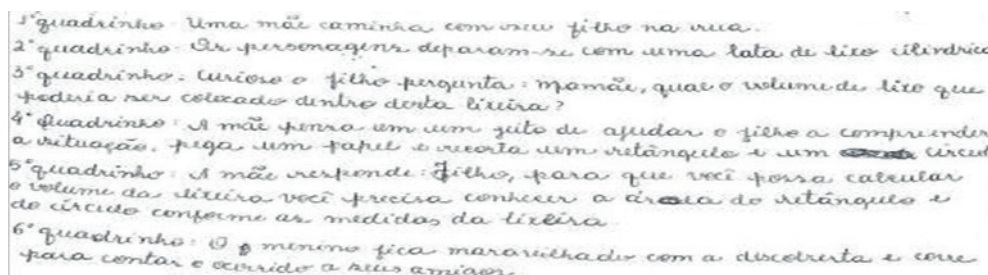 1° quadrinho: Uma mãe caminha com seu filho na rua.
2° quadrinho: Os personagens deparam-se com uma lata de lixo cilíndrica
3° quadrinho: Curioso o filho pergunta: mamãe, qual o volume de lixo que
poderia ser colocado dentro desta lixeira?
4° Quadrinho: A mãe pensa em um jeito de ajudar o filho a compreender
a situação, pega um papel e recorta um retângulo e um círcul
5° quadrinho: A mãe responde: Filho, para que você possa calcular
o volume da lixeira você precisa conhecer a área do retângulo e
do círculo conforme as medidas da lixeira.
6° quadrinho: O menino fica maravilhado com a descoberta e corre
para contar o ocorrido a seus amigos.